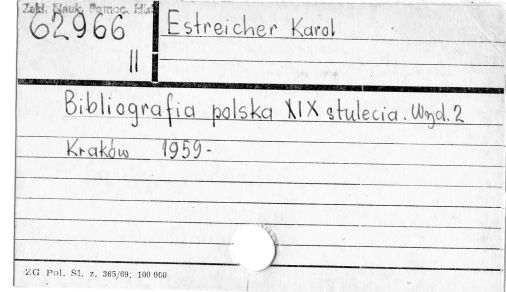 Zakł. Nauk. Pomoc. Hist
62966 Estreicher Karol
II
Bibliografia polska XIX stulecia. Wyd. 2
Kraków 1959-
ZG Pol. Śl. z. 365/69. 100 000